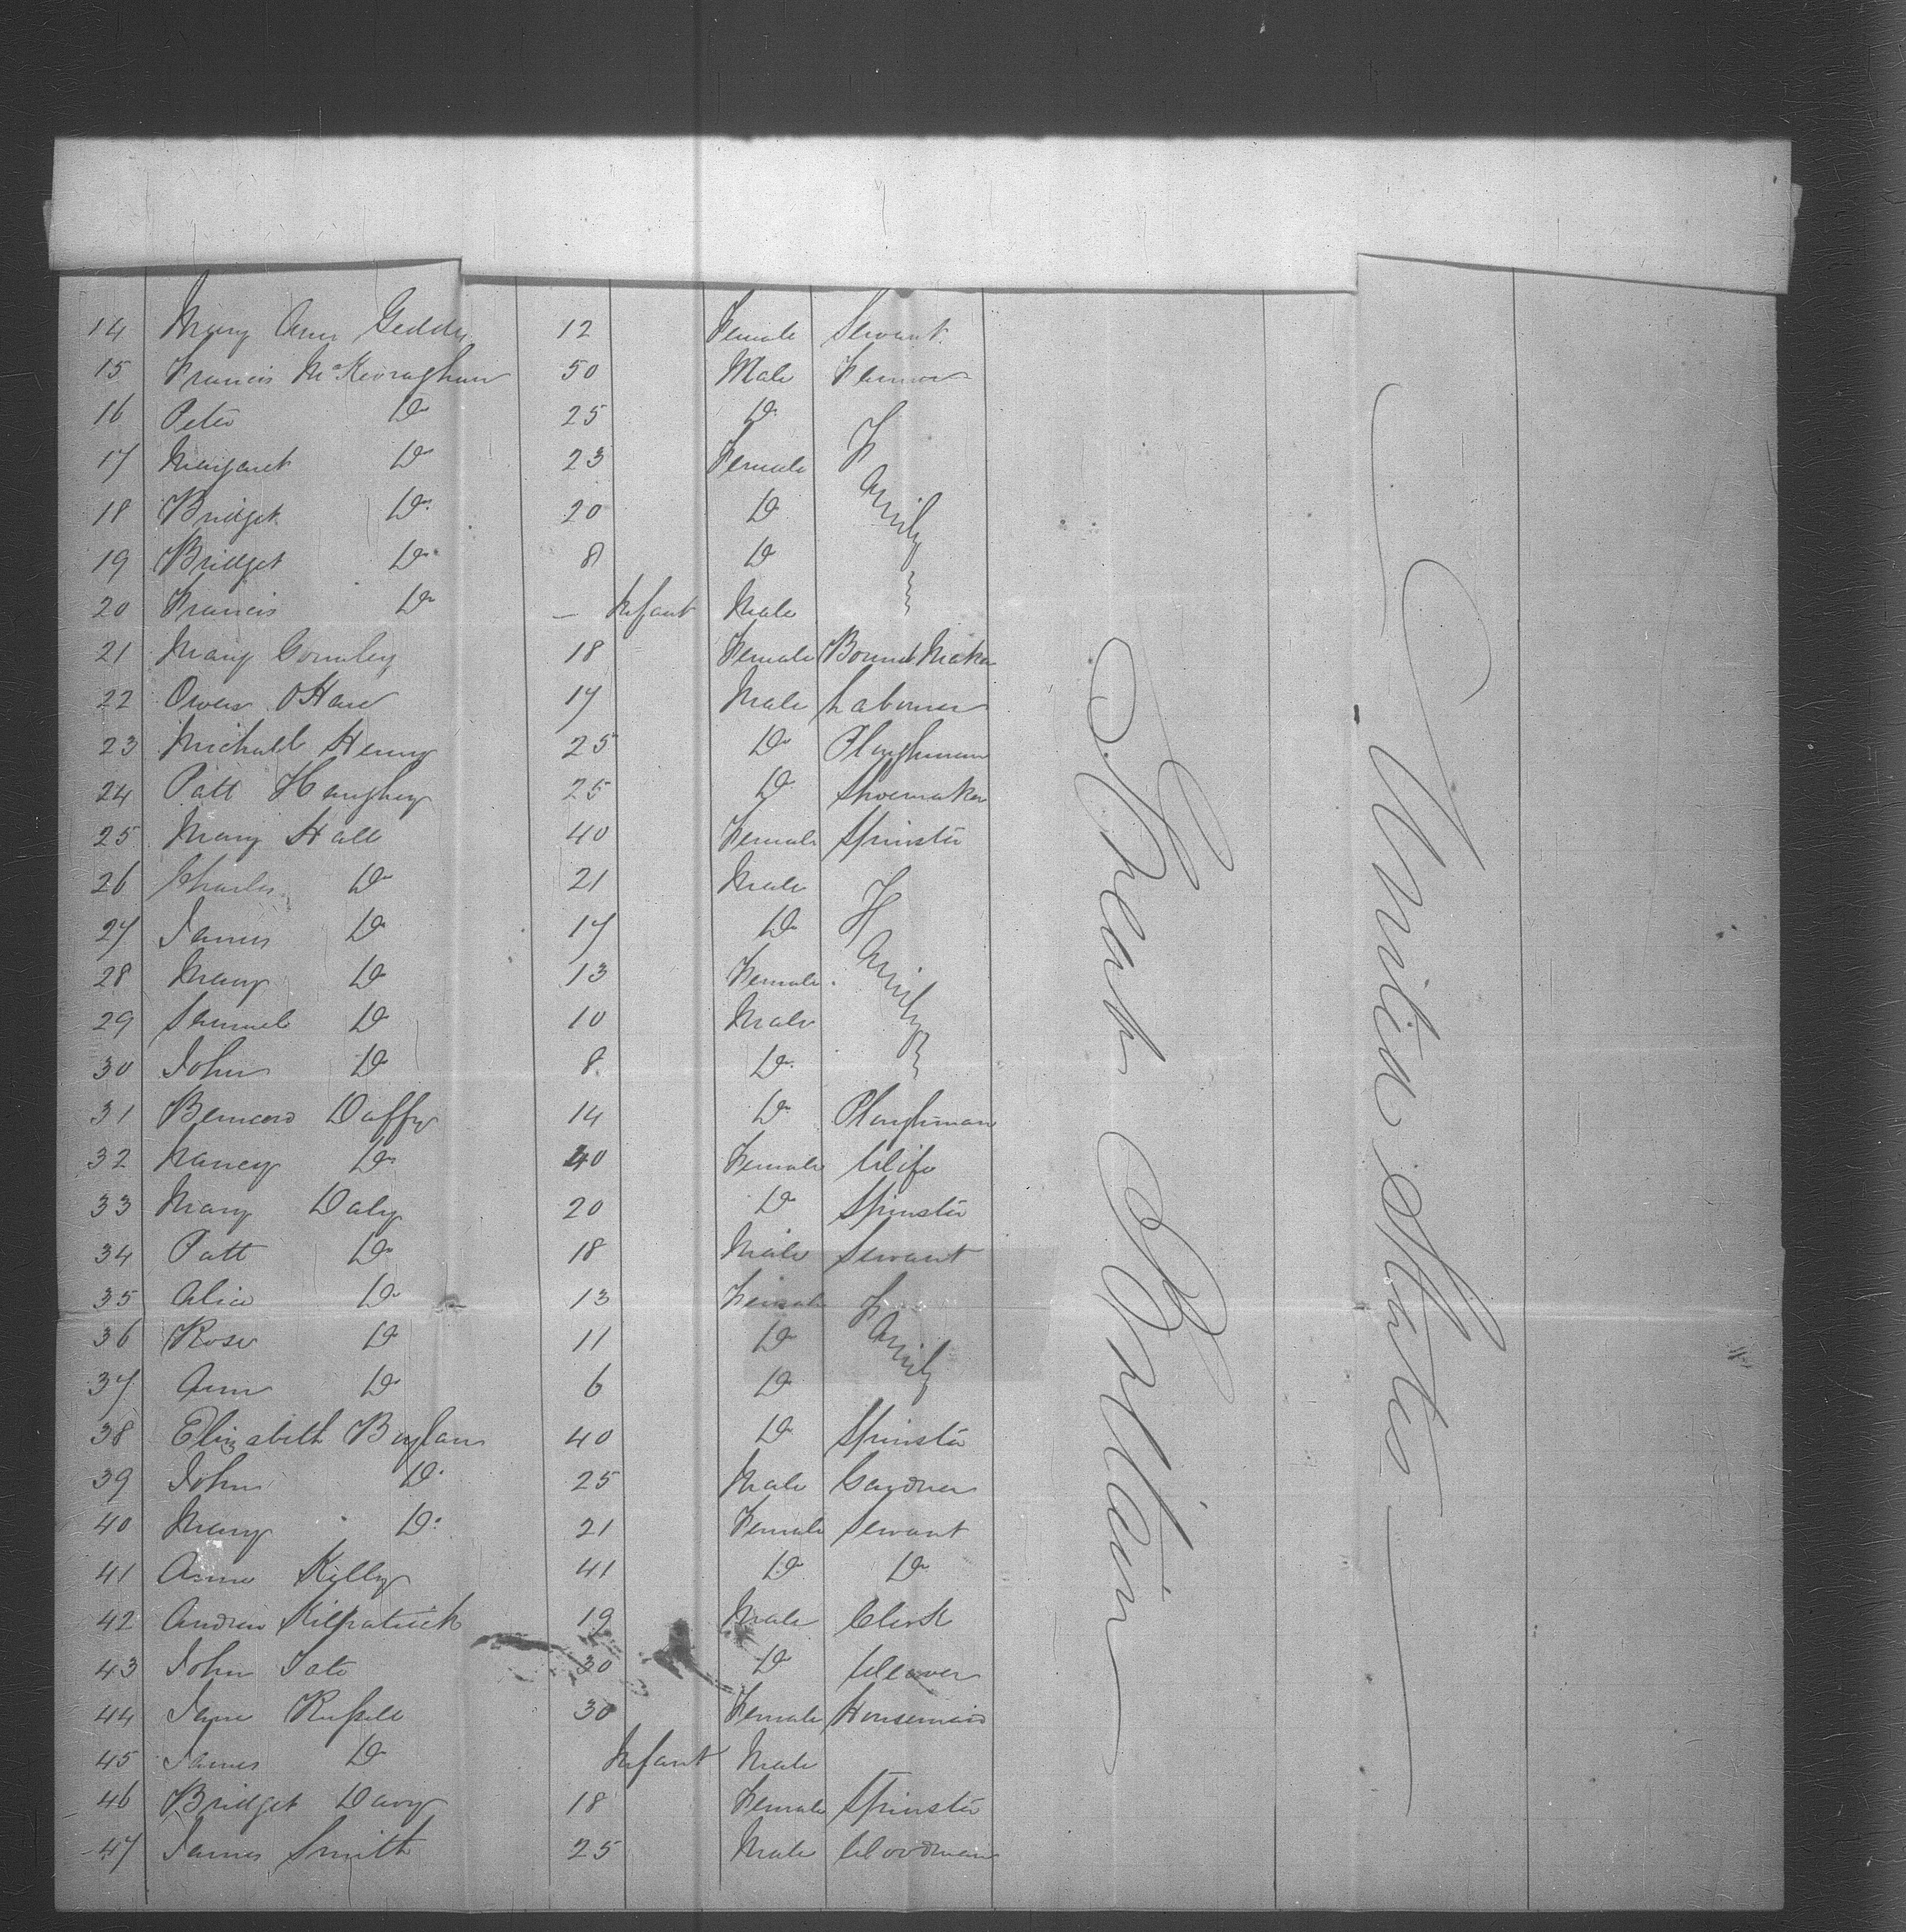 14 Mary Ann Geddes 12 Female Servant
15 Francis McKeiraghan 50 Male Farmer
16 Peter Do 25 Do
17 Margaret Do 23 Female
18 Bridget Do 20 Do
19 Bridget Do 8 Do
20 Francis Do — Infant Male
Family
21 Mary Gormley 18 Female Bonnet Maker
22 Owen OHare 17 Male Labourer
23 Michall Henry 25 Do Ploughman
24 Patt Haughey 25 Do Shoemaker
25 Mary Hall 40 Female Spinster
26 Charles Do 21 Male
27 James Do 17 Do
28 Mary Do 13 Female
29 Samuel Do 10 Male
30 John Do 8 Do
Family
31 Bernard Duffy 14 Do Ploughman
32 Nancy Do 40 Female Wife
33 Mary Daly 20 Do Spinster
34 Patt Do 18 Male Servant
35 Alice Do 13 Female
36 Rose Do 11 Do
37 Ann Do 6 Do
Family
38 Elizabeth Boylan 40 Do Spinster
39 John Do 25 Male Gardner
40 Mary Do 21 Female Servant
41 Anne Killy 41 Do Do
42 Andrew Kilpatrick 19 Male Clerk
43 John Tate 30 Do Weaver
44 Jane Russell 30 Female Housemaid
45 James Do Infant Male
46 Bridget Davy 18 Female Spinster
47 James Smith 25 Male Woodman
Great Britain
United States